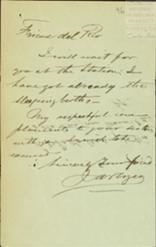 Friend del Rio
I will wait for
you at the Station. I
have got already the
sleeping berths.
My respectful com-
pliments to your
with
Sincere your friend